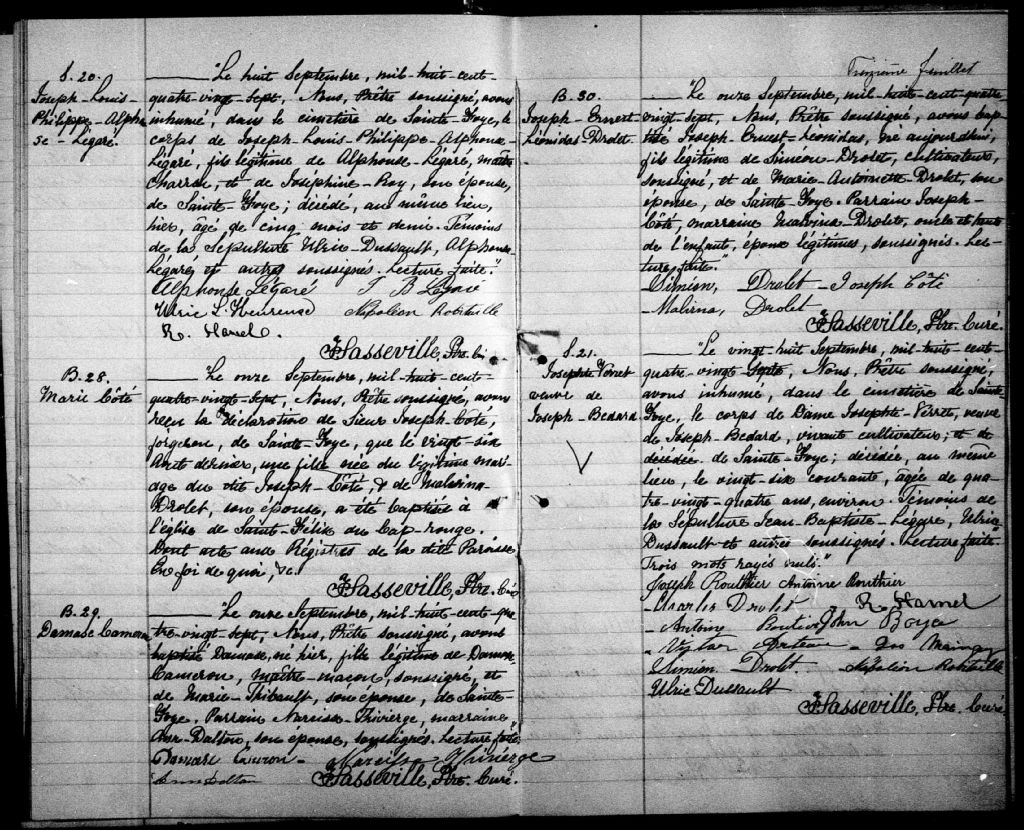 S. 20.
Joseph-Louis-
Philippe-Alphon
se-Légaré.
"Le huit Septembre, mil-huit-cent-
quatre-vingt-sept, Nous, Prêtre soussigné, avons
inhumé, dans le cimetière de Sainte-Foye, le
corps de Joseph-Louis-Philippe-Alphonse-
Légaré, fils légitime de Alphonse-Légaré, maître
charron, et de Joséphine-Roy, son épouse,
de Sainte-Foye; décédé, au même lieu,
hier, âgé de cinq mois et demi. Témoins
de la Sépulture Ulric-Dussault, Alphonse
Légaré, et autres soussignés. Lecture faite."
Alphonse Légaré J B Légaré
Ulric L'Heureux Napoléon Robitaille
R. Hamel.
FXSasseville, Ptre. Cu
B. 28.
Marie Côté
"Le onze Septembre, mil-huit-cent-
quatre-vingt-sept, Nous, Prêtre soussigné, avons
reçu la déclaration de Sieur Joseph-Côté,
forgeron, de Sainte-Foye, que le vingt-six
Août dernier, une fille née du légitime mari-
age du dit Joseph-Côté, & de Malvina-
Drolet, son épouse, a été baptisée à
l'église de Saint-Félix du Cap-rouge.
Dont acte aux Régistres de la dite Paroisse
En foi de quoi, &c.
FXSasseville, Ptre. Curé
B. 29.
Damase Cameron
"Le onze Septembre, mil-huit-cent-qua-
tre-vingt-sept, Nous, Prêtre soussigné, avons
baptisé Damase, né hier, fils légitime de Damase
Cameron, maître-maçon, soussigné, et
de Marie-Thibault, son épouse, de Sainte-
Foye, Parrain Narcisse-Thivierge, marraine
Ann-Dalton, son épouse, soussignés. Lecture faite."
Damase Cameron Narcisse Thivierge
Anne Dalton FXSasseville, Ptre. Curé.
Treizième feuillet
B. 30.
Joseph-Ernest
Léonidas-Drolet.
"Le onze Septembre, mil-huit-cent-quatre-
vingt-sept, Nous, Prêtre soussigné, avons bap-
tisé Joseph-Ernest-Léonidas, né aujourdhui,
fils légitime de Siméon-Drolet, cultivateur,
soussigné, et de Marie-Antoinette-Drolet, son
épouse, de Sainte-Foye. Parrain Joseph-
Côté, marraine Malvina-Drolet, oncle et tante
de l'enfant, époux légitimes, soussignés. Lec-
ture faite."
Simion, Drolet - Joseph Côté
- Malvina, Drolet
FXSasseville, Ptre. Curé.
S. 21.
Josephte Verret
veuve de
Joseph-Bedard
"Le vingt-huit Septembre, mil-huit-cent-
quatre-vingt-Septe, Nous, Prêtre soussigné,
avons inhumé, dans le cimetière de Sainte
Foye, le corps de Dame Josephte-Verret, veuve
de Joseph-Bedard, vivant cultivateur; et de
décédée de Sainte-Foye; décédée, au même
lieu, le vingt-six courante, âgée de qua-
tre-vingt-quatre ans, environ. Témoins de
la Sépulture Jean-Baptiste-Légaré, Ulric
Dussault et autres soussignés. Lecture faite."
Trois mots rayés nuls."
Joseph Routhier Antoine Routhier
- Charles Drolet - R. Hamel
- Antoine John Boyce
Simion Drolet - Napoléon Robitaille
Ulric Dussault
FXSasseville, Ptre. Curé